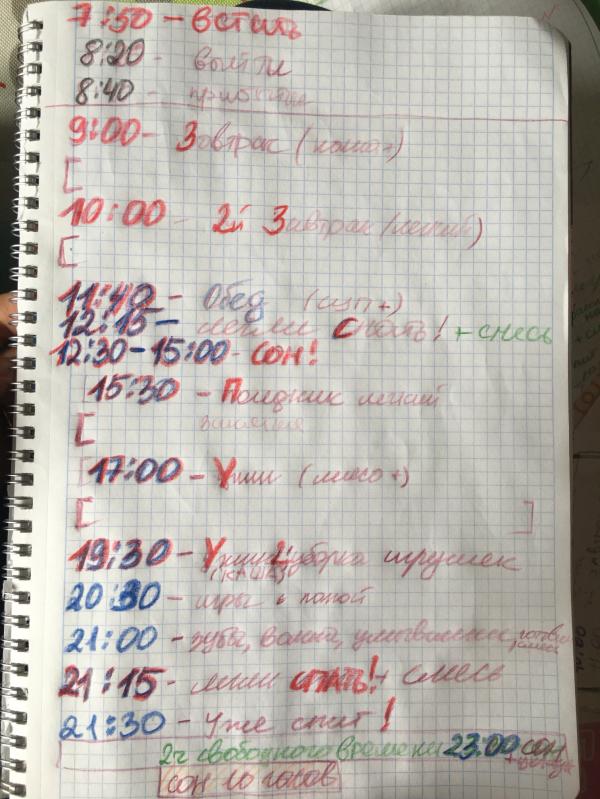 7:50 - Встать
8:20 - выйти
8:40 -
9:00 - Завтрак (каша+)
[
10:00 - 2й Завтрак (легкий)
[
11:40 - Обед (суп+)
12:15 - легли спать! + смесь
12:30 - 15:00 - сон!
15:30 - Полдник легкий
[
17:00 - Ужин (мясо+)
[ ]
19:30 - Ужин 2: уборка игрушек
(КАША)
20:30 - игры с папой
21:00 - зубы, ванна, умывание,
21:15 - легли спать! + смесь
21:30 - Уже спит!
2ч свободного времени 23:00 сон
сон 10 часов